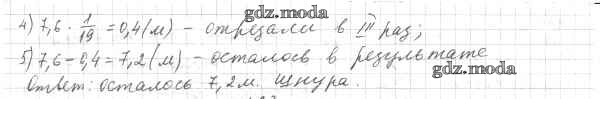 gdz.moda
4) 7,6 · 1/19 = 0,4 (м) – отрезали в III раз;
5) 7,6 – 0,4 = 7,2 (м) – осталось в результате
gdz.moda
Ответ: осталось 7,2 м. шнура.
gdz.moda